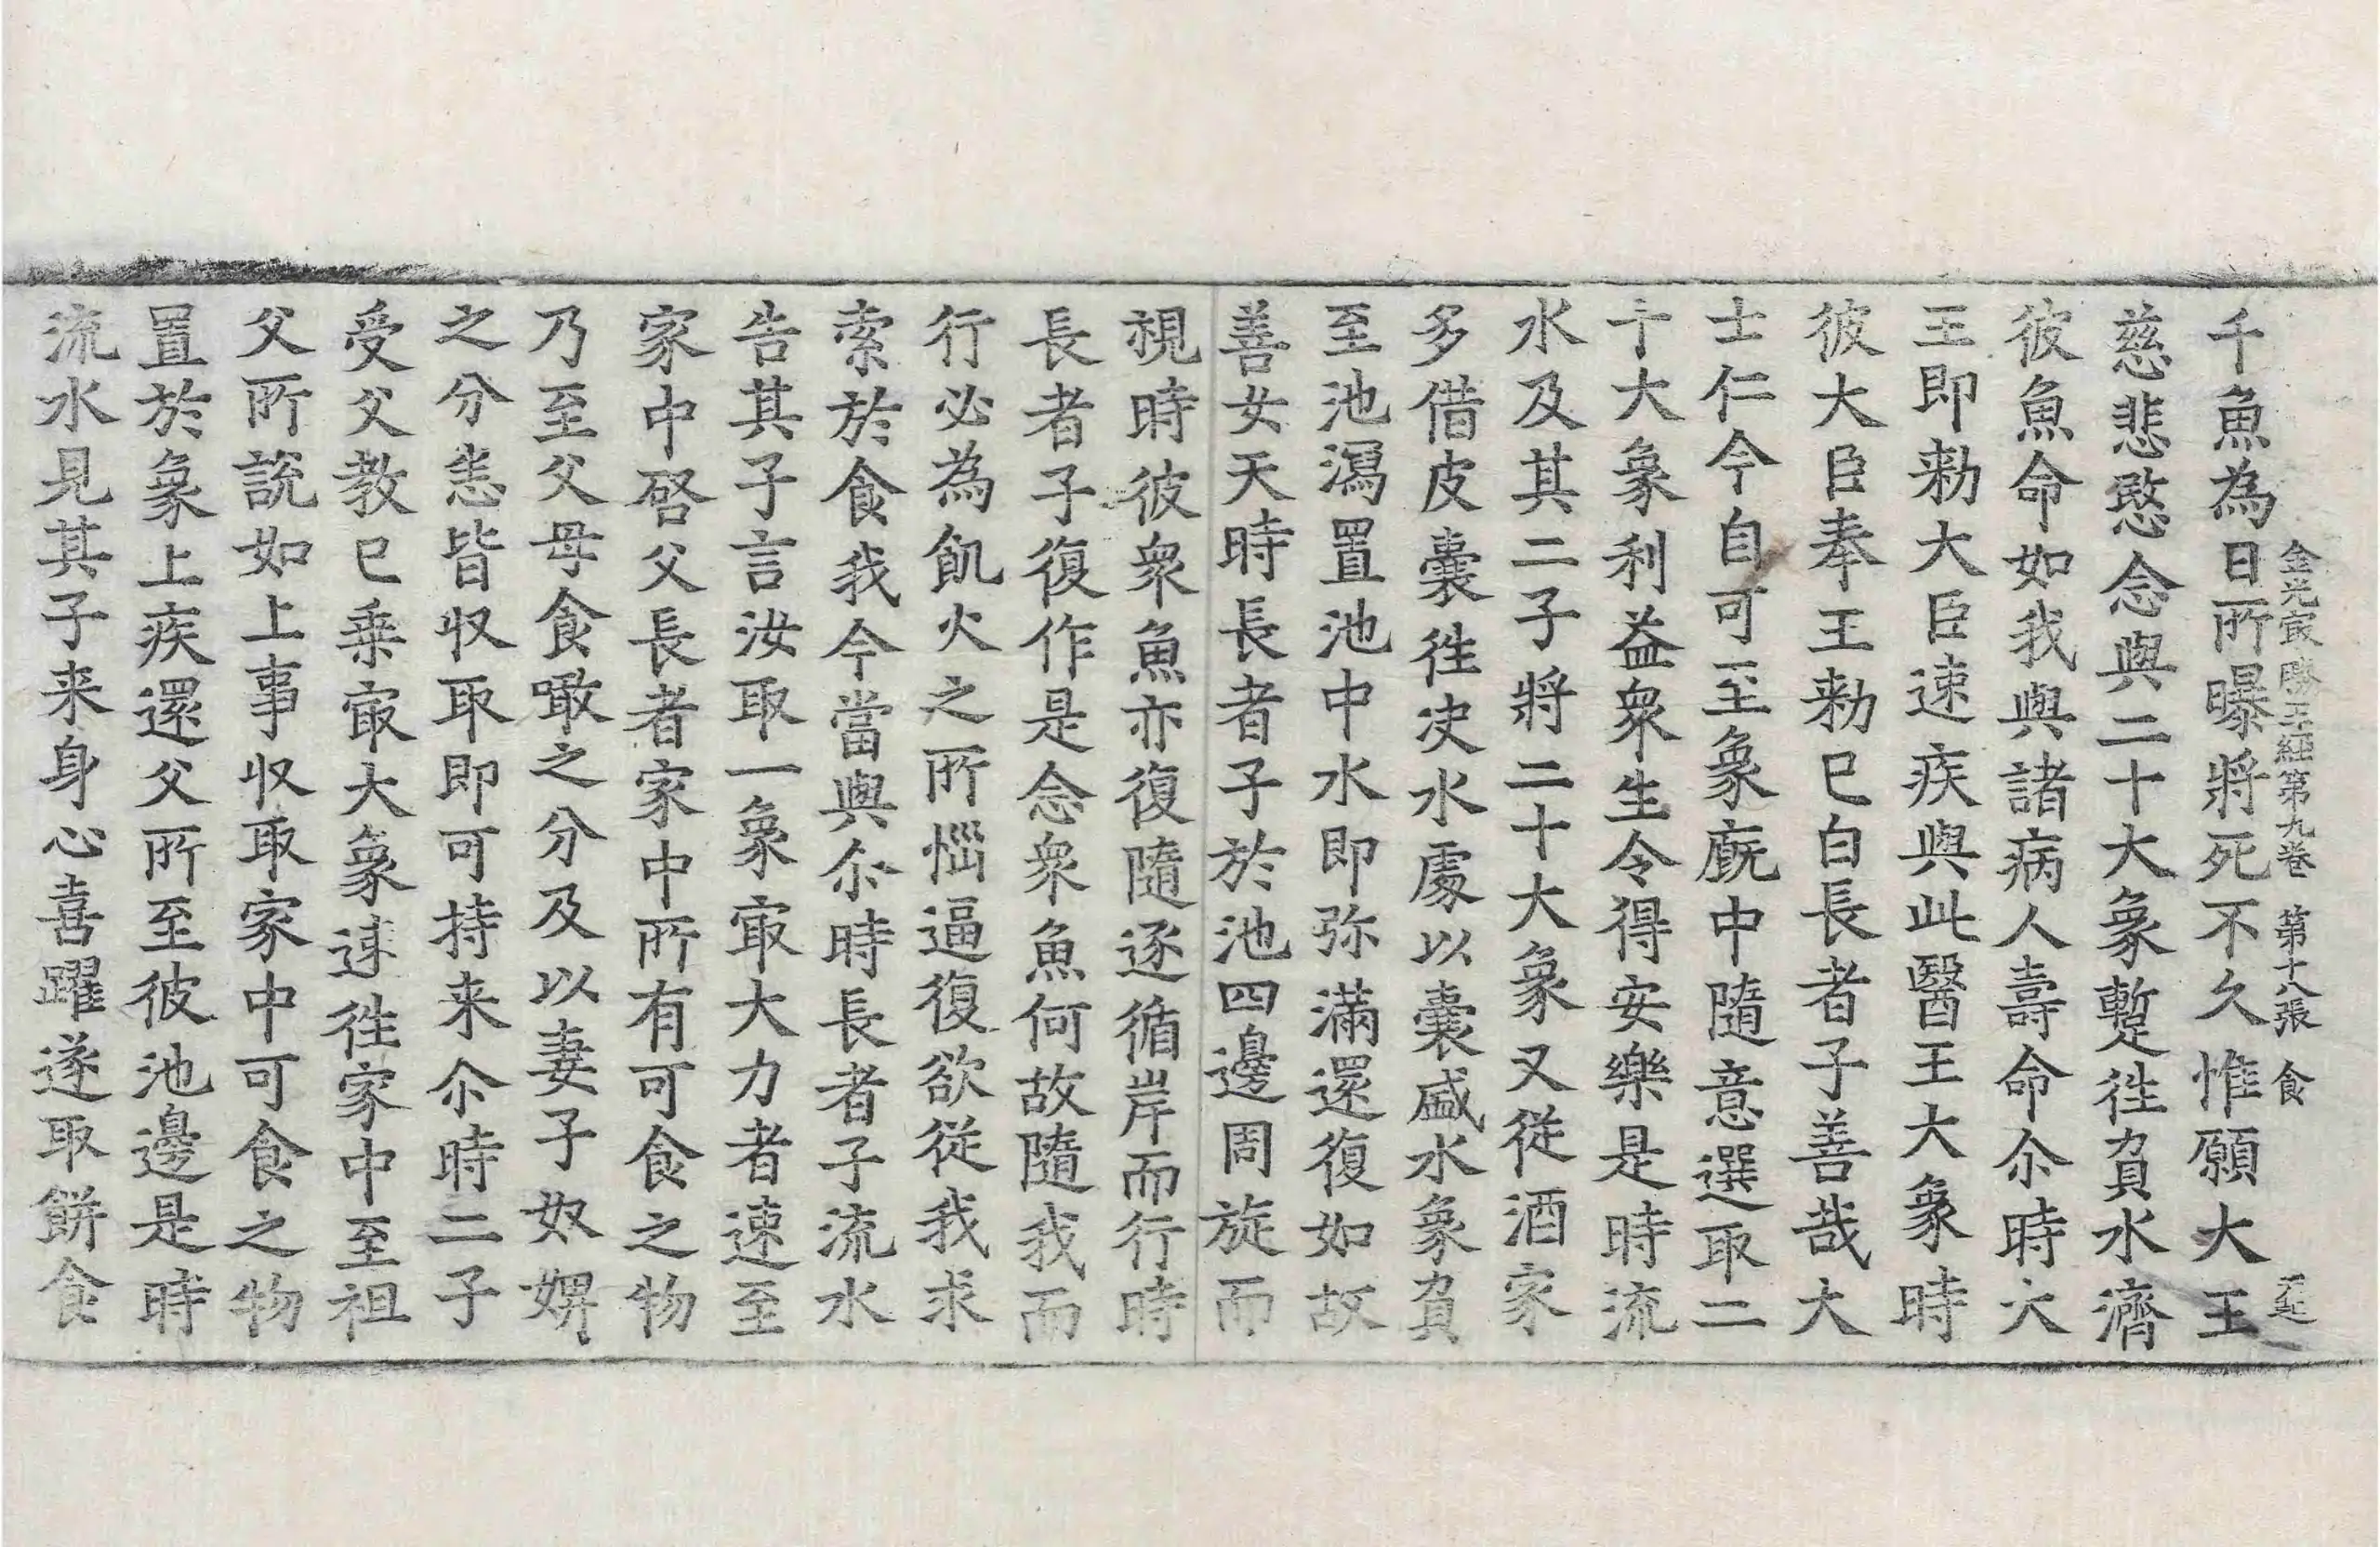 金光冣勝王經第九卷 第十八張 食
千魚為日所曝將死不久惟願大王
慈悲愍念與二十大象蹔徃負水濟
彼魚命如我與諸病人壽命尒時大
王即勑大臣速疾與此醫王大象時
彼大臣奉王勑已白長者子善哉大
士仁今自可至象廐中隨意選取二
十大象利益衆生令得安樂是時流
水及其二子將二十大象又從酒家
多借皮囊徃決水處以囊盛水象負
至池瀉置池中水即弥滿還復如故
善女天時長者子於池四邊周旋而
視時彼衆魚亦復隨逐循岸而行時
長者子復作是念衆魚何故隨我而
行必為飢火之所惱逼復欲從我求
索於食我今當與尒時長者子流水
告其子言汝取一象冣大力者速至
家中啓父長者家中所有可食之物
乃至父母食噉之分及以妻子奴婢
之分悉皆収取即可持来尒時二子
受父教已乗冣大象速徃家中至祖
父所說如上事収取家中可食之物
置於象上疾還父所至彼池邊是時
流水見其子来身心喜躍遂取餅食